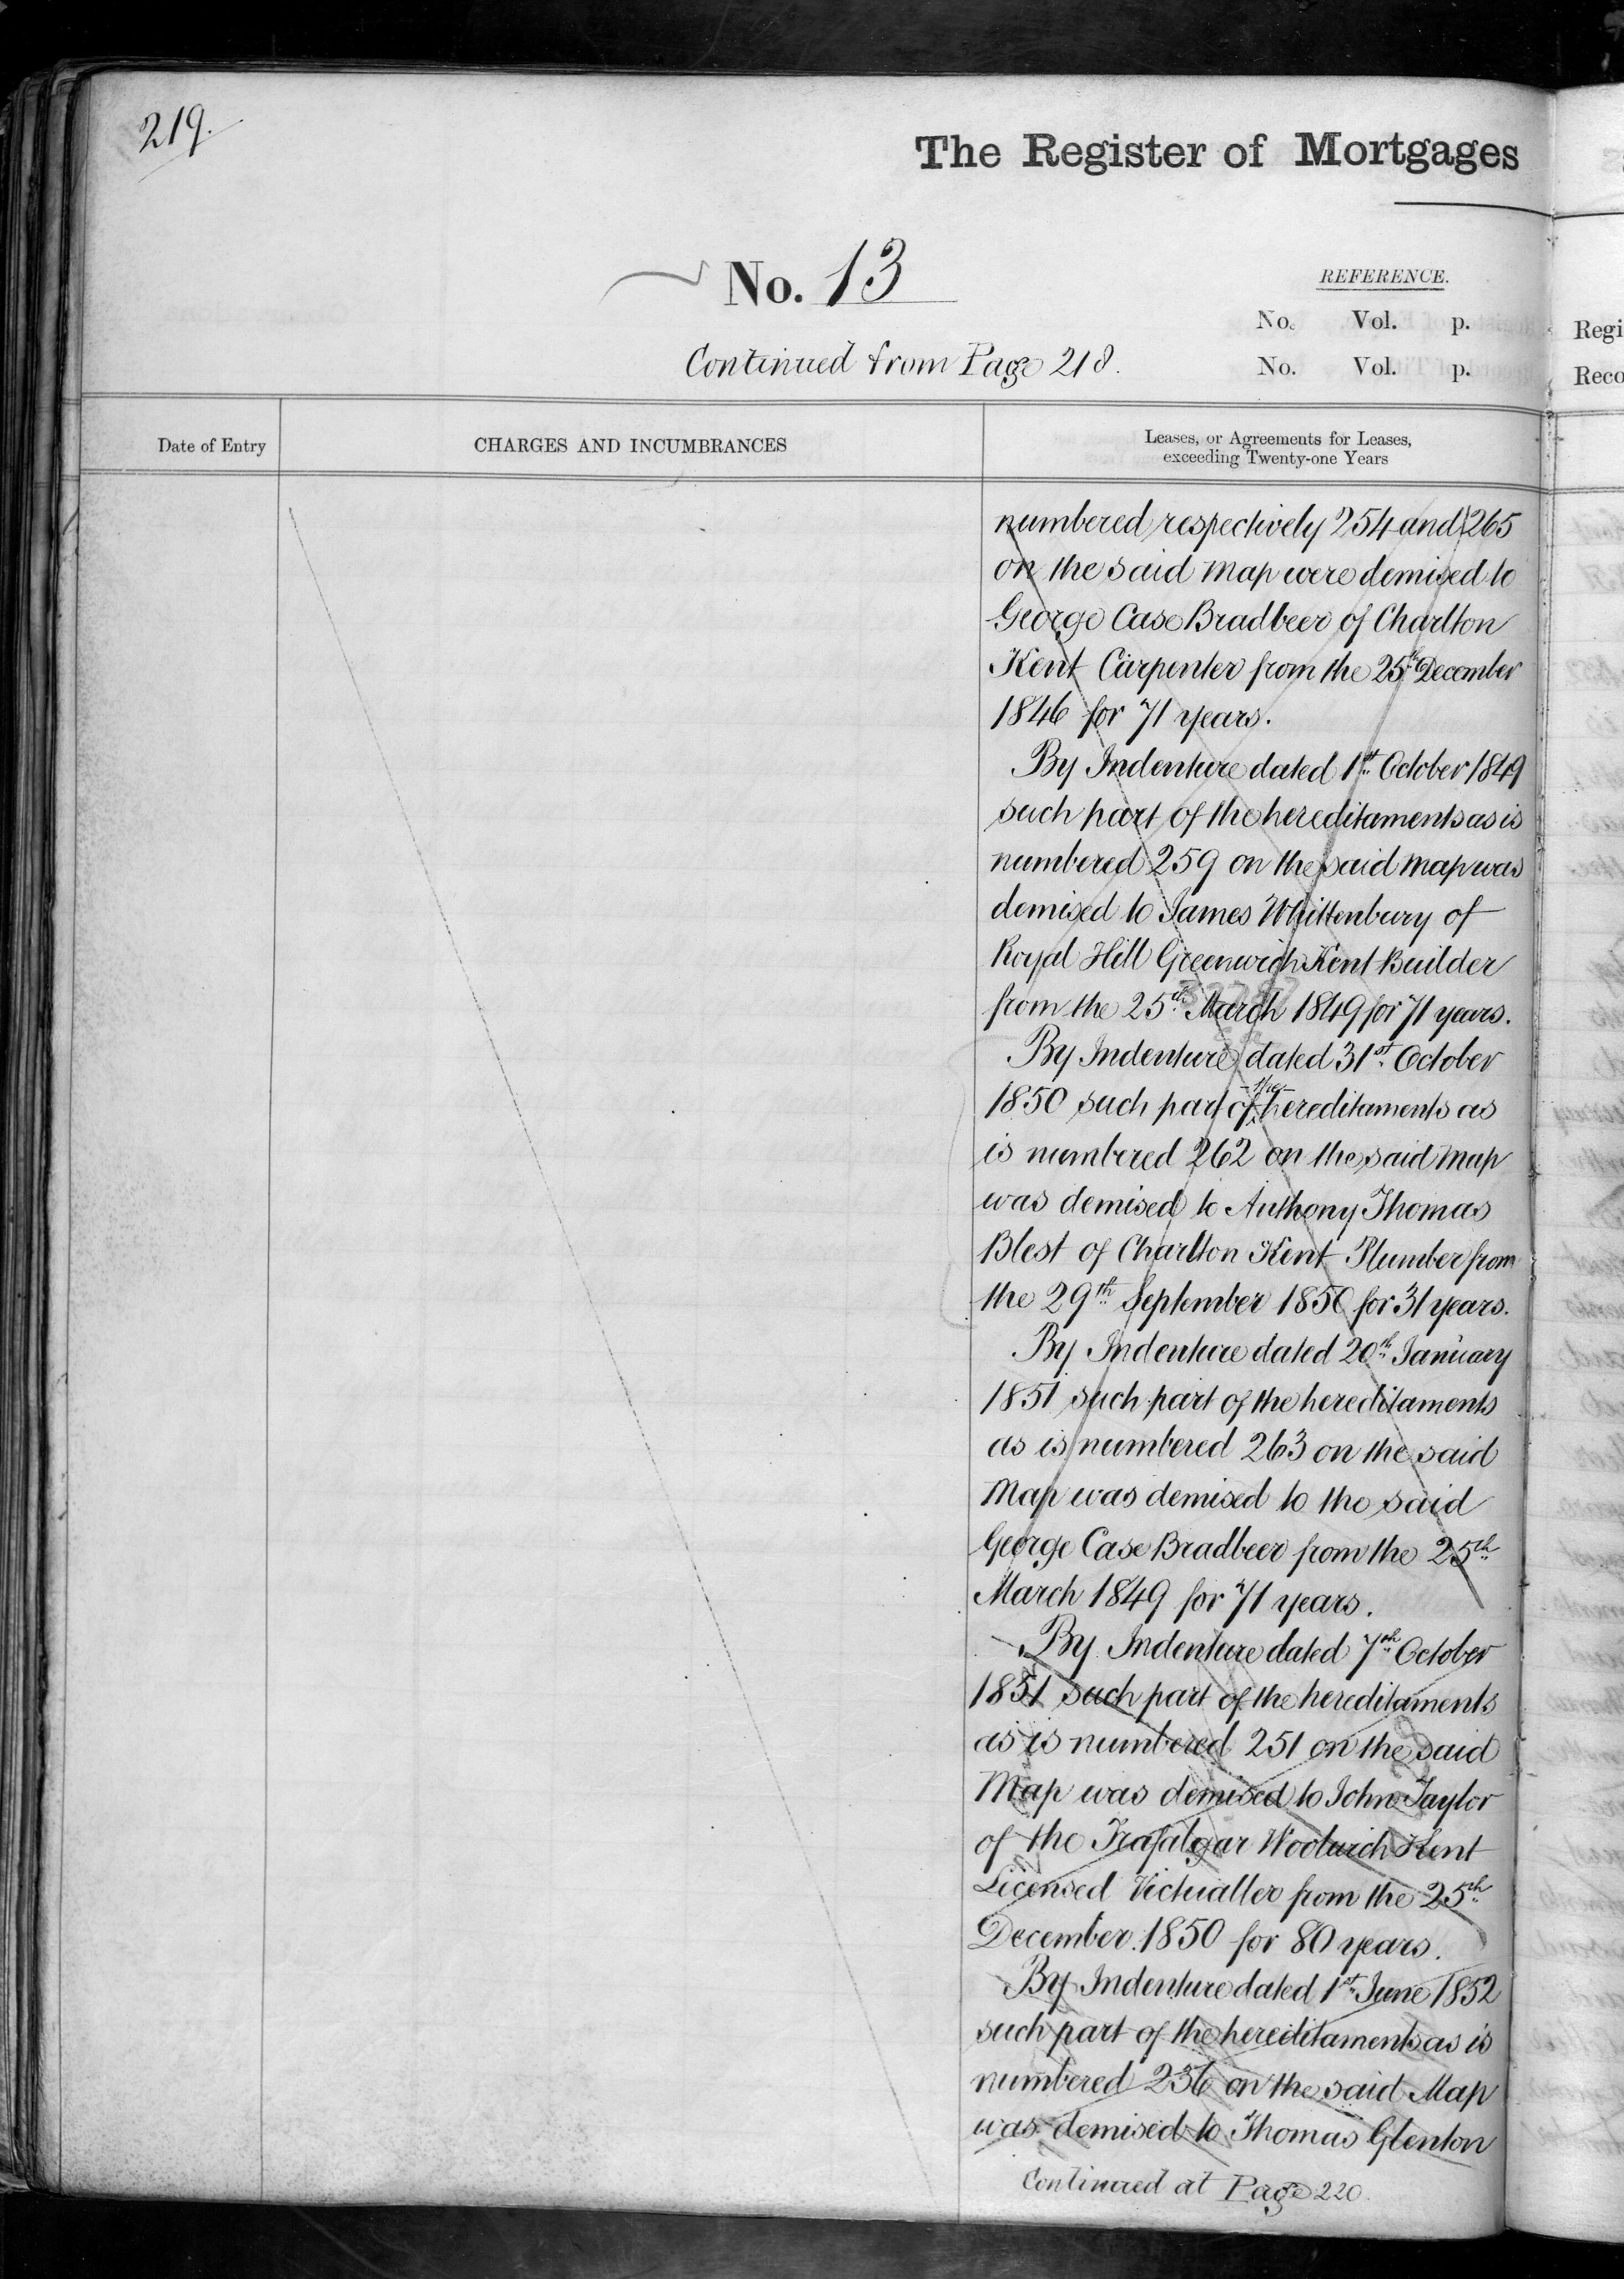 219.
The Register of Mortgages
No. 13
REFERENCE.
No. Vol. p.
No. Vol. p.
Continued from Page 218.
Regi
Reco
Date of Entry
CHARGES AND INCUMBRANCES
Leases, or Agreements for Leases,
exceeding Twenty-one Years
numbered respectively 254 and 265
on the said map were demised to
George Case Bradbeer of Charlton
Kent Carpenter from the 25th December
1846 for 71 years.
By Indenture dated 1st October 1849
such part of the hereditaments as is
numbered 259 on the said map was
demised to James Whittenbury of
Royal Hill Greenwich Kent Builder
from the 25th March 1849 for 71 years.
By Indenture dated 31st October
1850 such part of the hereditaments as
is numbered 262 on the said map
was demised to Anthony Thomas
Blest of Charlton Kent Plumber from
the 29th September 1850 for 31 years.
By Indenture dated 20th January
1851 such part of the hereditaments
as is numbered 263 on the said
Map was demised to the said
George Case Bradbeer from the 25th
March 1849 for 71 years.
By Indenture dated 7th October
1851 such part of the hereditaments
as is numbered 251 on the said
Map was demised to John Taylor
of the Trafalgar Woolwich Kent
Licensed Victualler from the 25th
December 1850 for 80 years.
By Indenture dated 1st June 1852
such part of the hereditaments as is
numbered 236 on the said Map
was demised to Thomas Glenton
Continued at Page 220.